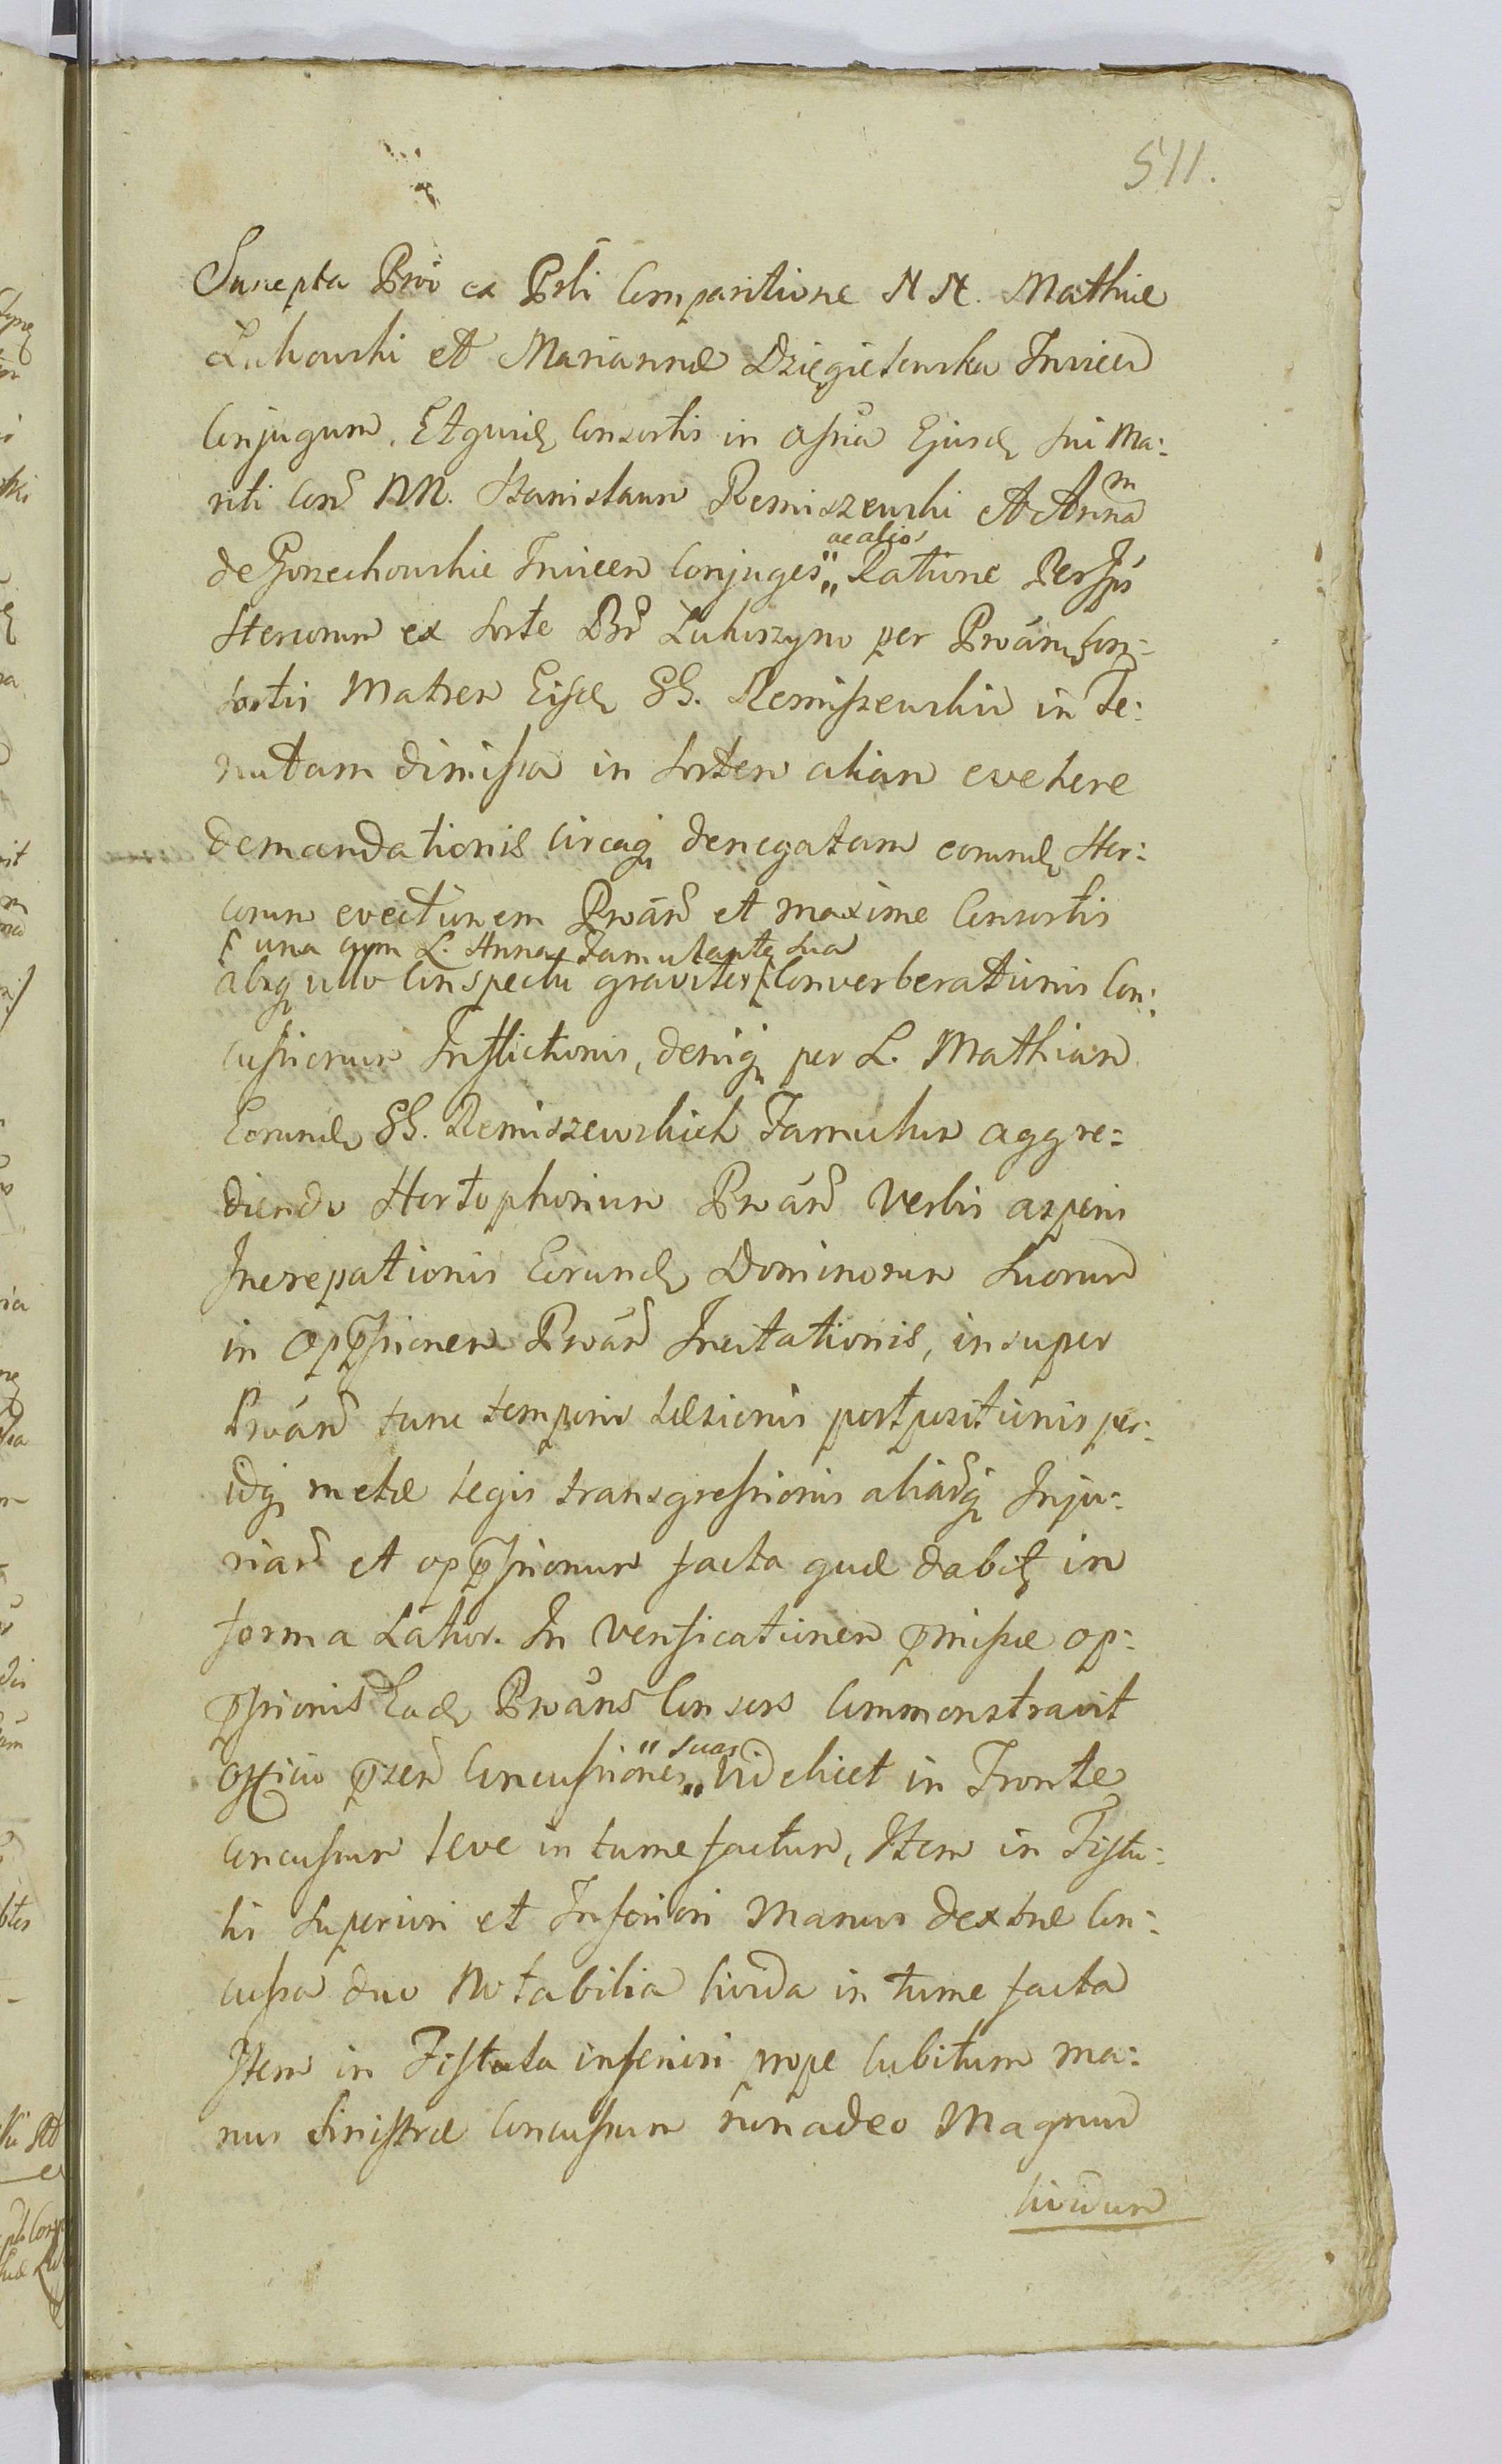 511.
Suscepta Prōō ex Prti Comparitione N.N. Mathiæ
Łukowski et Mariannæ Dzięgielewska Invicem
Conjugum, Et quid Consortis in Assña Ejusd sui Ma:
riti con̄ NN. Stanislaum Remiszewski et Annam
ac alios
de Gorzechowskie Invicem Conjuges „ Ratione Per Ipsos
Stercorum ex Sorte Bñ Łukoszyno per Proãm Con:
sortis Matrem Eisd GG. Remiszewskim in Te:
nutam dimissa in Sortem aliam evehere
demandationis circaq denegatam eorund Ster:
corum evectionem Proãn et maxime Consortis
una cum L. Anna Famulante sua
absq ullo Conspectu graviter Converberationis Con:
cussionum Inflictionis, deniq per L. Mathiam
Eorund GG. Remiszewskich Famulum aggre:
diendo Hortophorium Proãn Verbis asperis
Increpationis Eorund Dominorum Suorum
in Oppssionem Proãn Incitationis, insuper
Proãn tunc temporis læsionis postpositionis per:
idq metæ legis transgressionis aliarq Inju:
riar et oppssionum facta quæ dabit in
forma Latior. In Verificationem pmissæ op:
pssionis Ead Proãns Consors Commonstravit
Officio psen Concussiones „ suas Videlicet in Fronte
concussum leve in tumefactum, Item in Fistu:
lis Superiori et Inferiori Manus dextræ Con:
cussa duo Notabilia livida in tume facta
Item in Fistula inferiori prope Cubitum ma:
nus Sinistræ Concussum non adeo Magnum
lividum